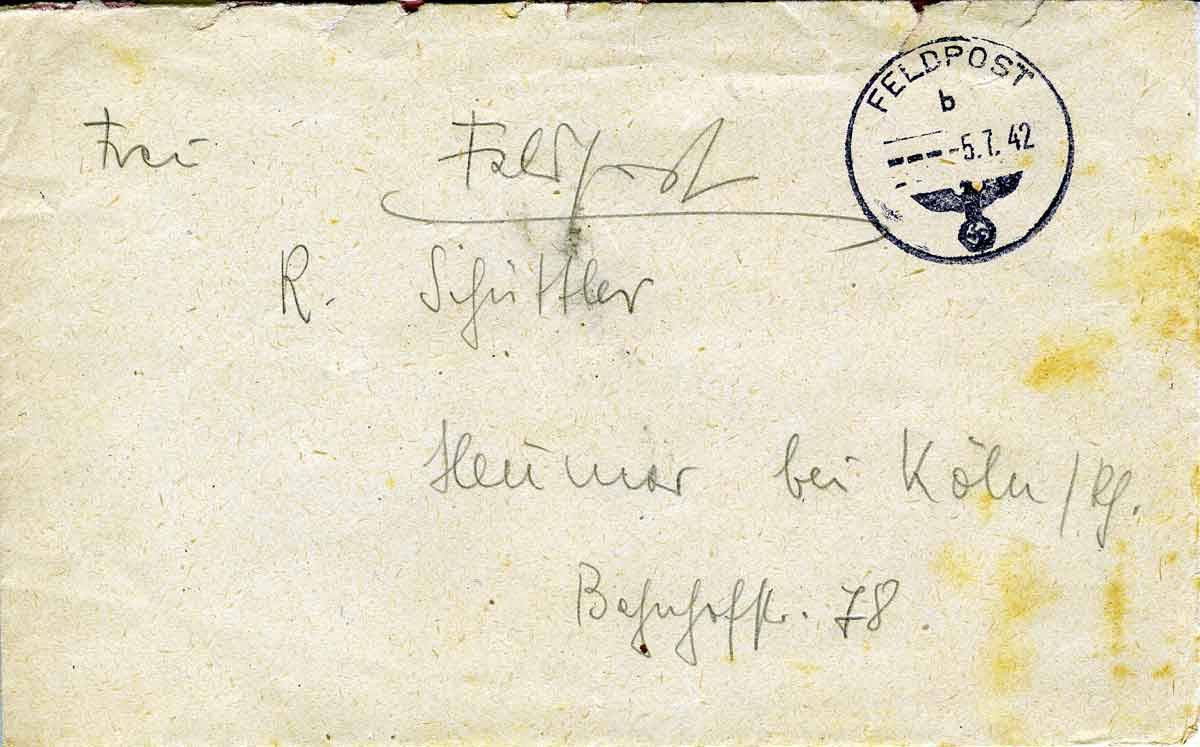 FELDPOST
b
-5.7.42
Frau Feldpost
R. Schüttler
Heumar bei Köln /Rh.
Bahnhofstr. 78.